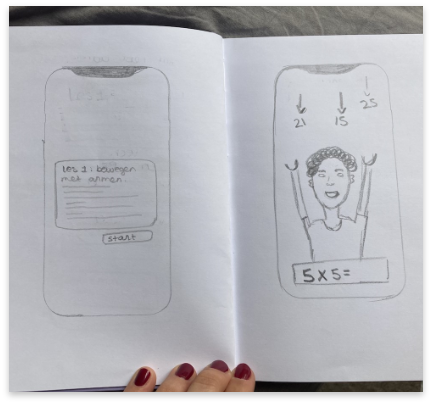 Les 1: bewegen
met armen
start
21
15
25
5x5=